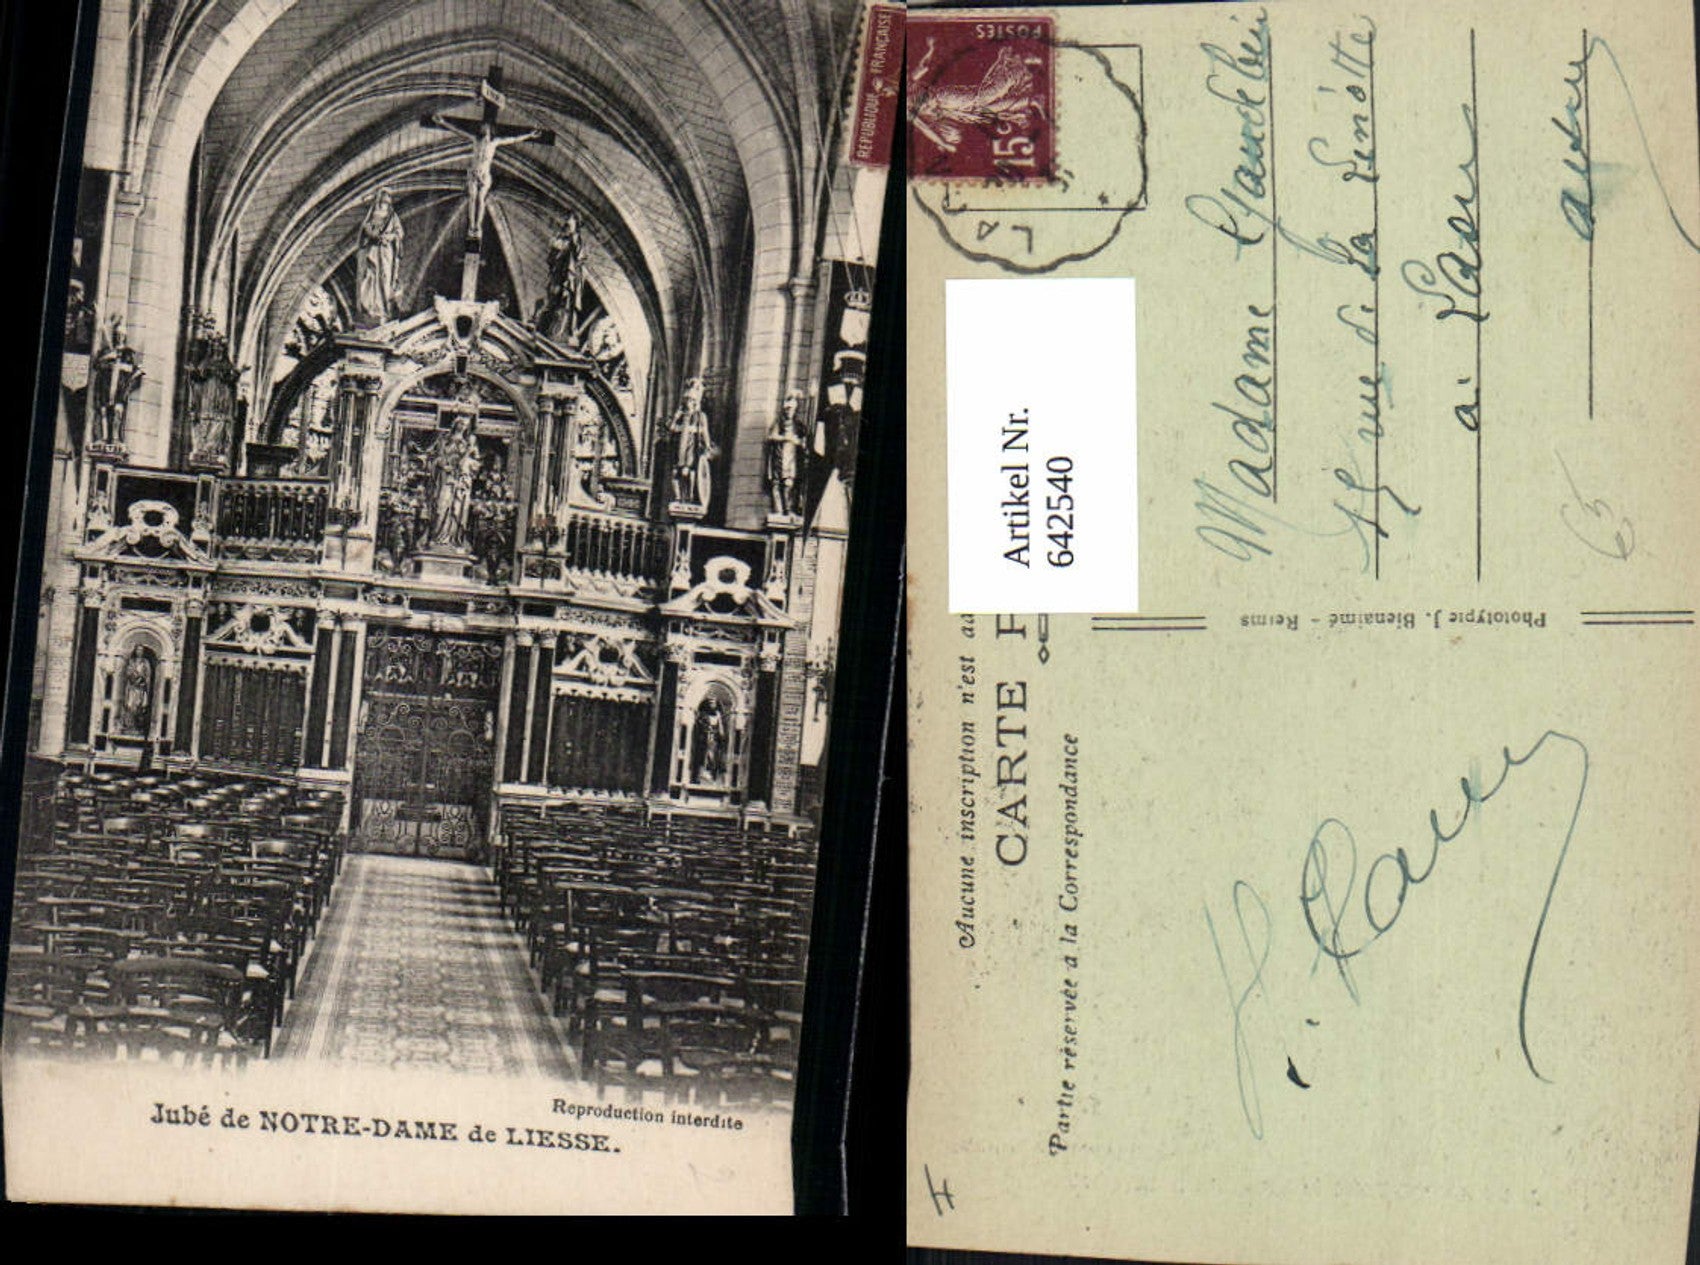 INRI
REPUBLIQUE FRANÇAISE
Reproduction interdite
Jubé de NOTRE-DAME de LIESSE.
POSTES
15c
Artikel Nr.
642540
Aucune inscription n'est ad
CARTE P
Partie réservée à la Correspondance
Phototypie J. Bienaimé - Reims
Madame
rue de la
à Laon
Aisne
65